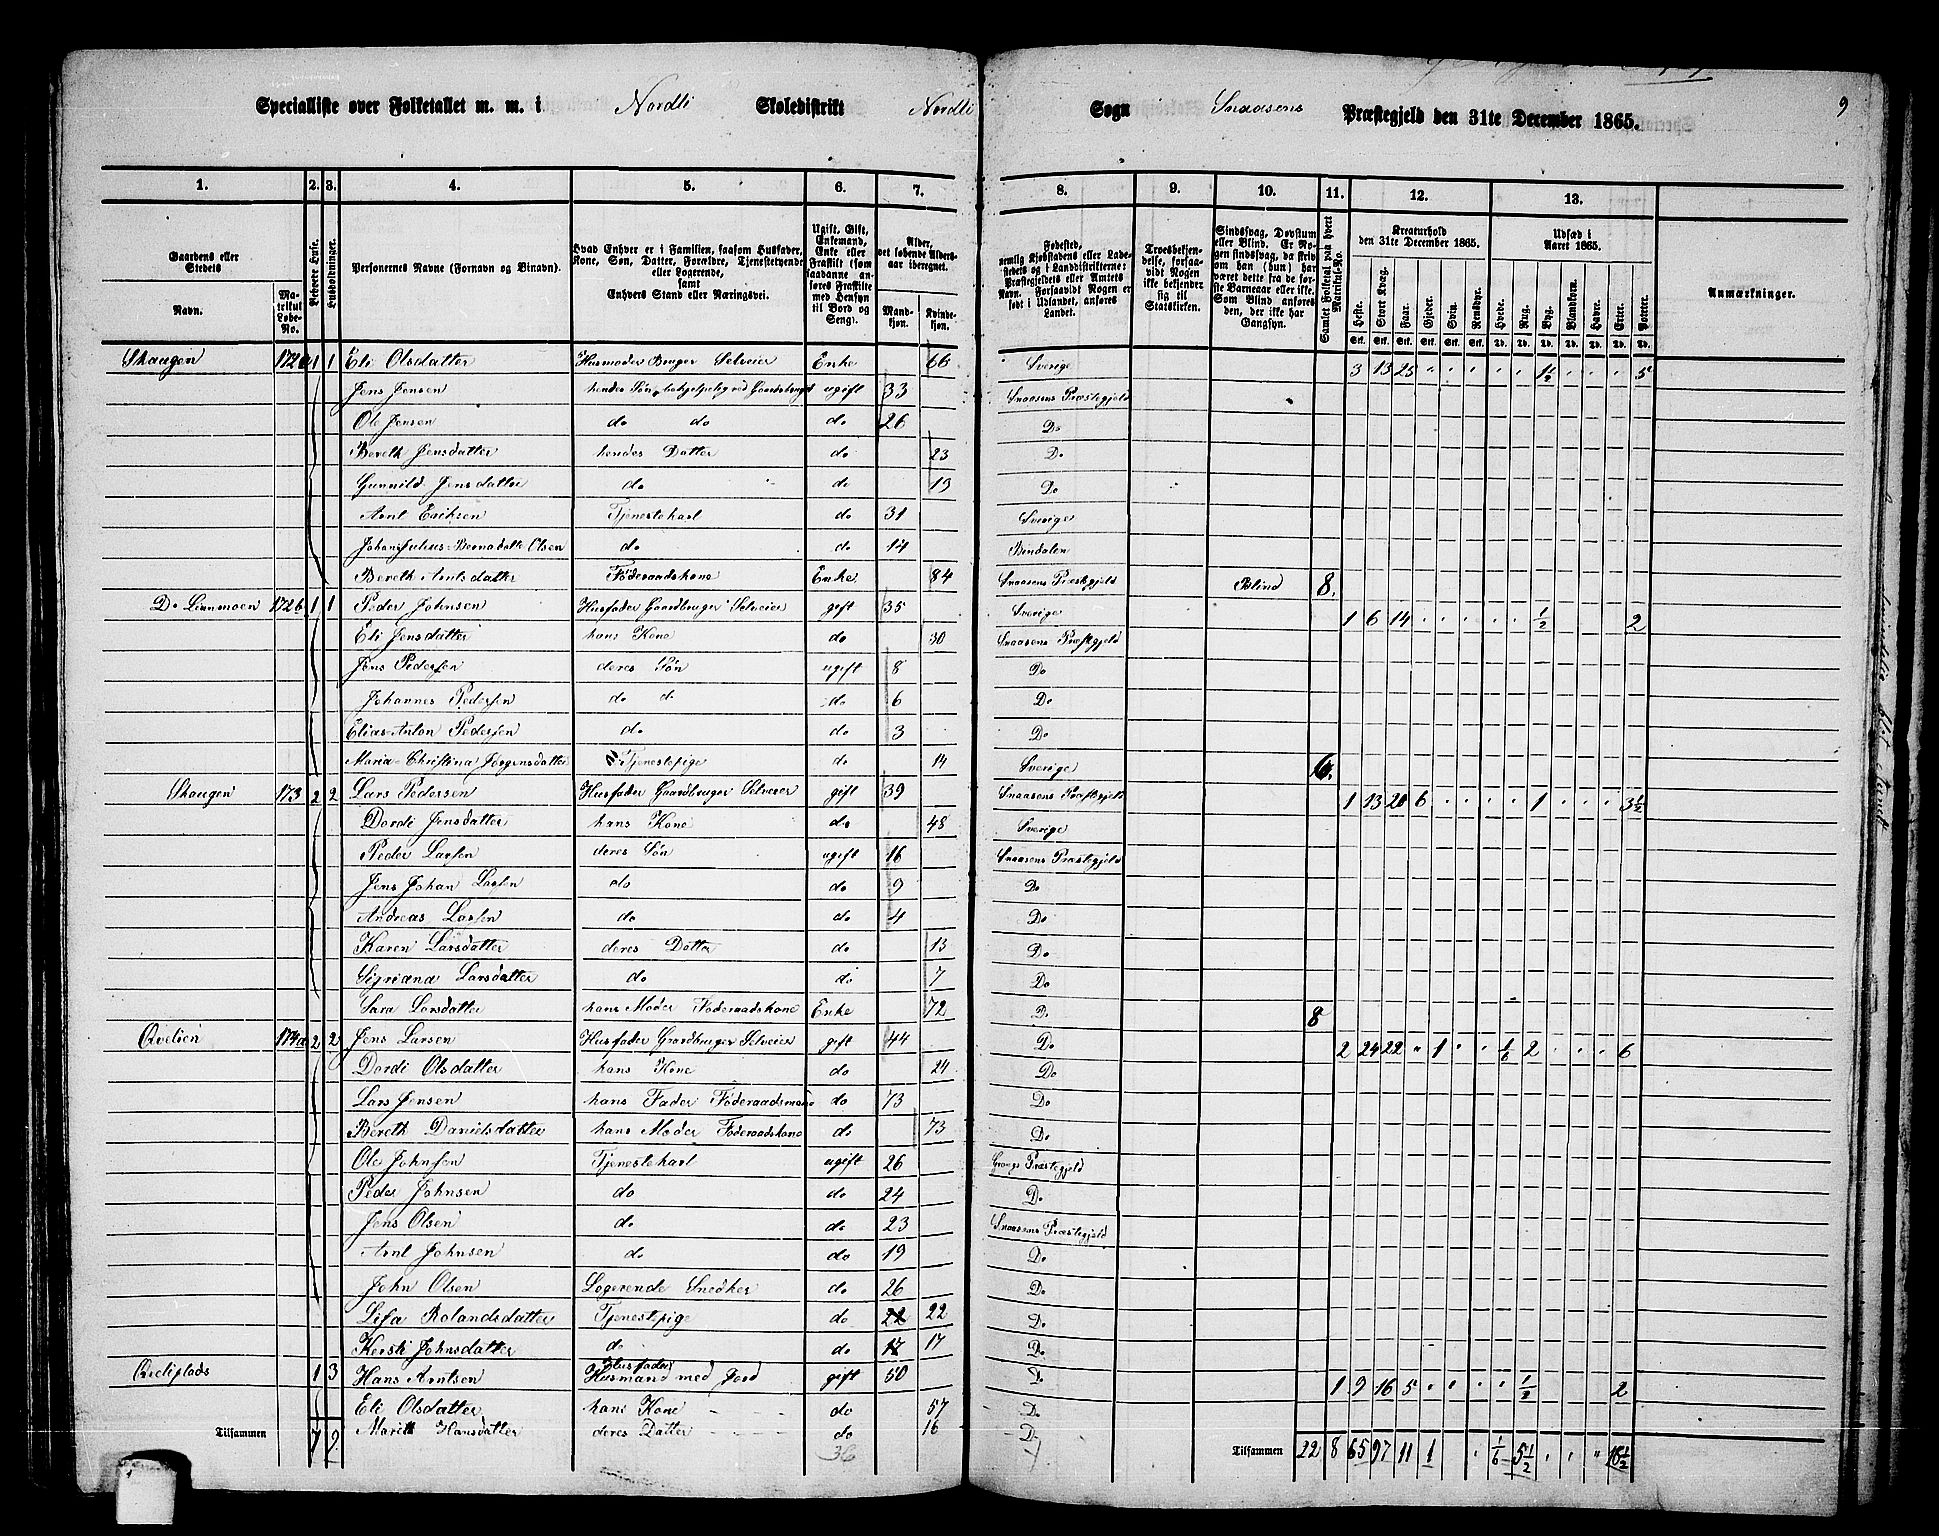 Specialliste over Folketallet m. m. i Nordli Skoledistrikt Nordli Sogn Snaasens Præstegjeld den 31te December 1865. 9
1. 2. 3. 4. 5. 6. 7. 8. 9. 10. 11. 12. 13.
Gaardens eller Stedets
Navn.
Matrikul Løbe-No.
Beboere Huse.
Husholdninger.
Personernes Navne (Fornavn og Binavn).
Hvad Enhver er i Familien, saasom Husfader, Kone, Søn, Datter, Forældre, Tjenestetyende eller Logerende, samt Enhvers Stand eller Næringsvei.
Ugift, Gift, Enkemand, Enke eller Fraskilt (som saadanne anføres Fraskilte med Hensyn til Bord og Seng).
Alder, det løbende Aldersaar iberegnet.
Mandkjøn. Kvindekjøn.
Fødested, nemlig Kjøbstadens eller Ladestedets og i Landdistrikterne: Præstegjeldets eller Amtets Navn. Forsaavidt Nogen er født i Udlandet, anføres Landet.
Troesbekjendelse, forsaavidt Nogen ikke bekjender sig til Statskirken.
Sindssvag, Døvstum eller Blind. Er Nogen sindssvag, da skrives om han (hun) har været dette fra de første Barneaar eller ikke. Som Blind anføres den, der ikke har Gangsyn.
Samlet Folketal paa hvert Matrikul-No.
Kreaturhold den 31te December 1865.
Heste. Stort Kvæg. Faar. Gjeder. Svin. Rensdyr.
Udsæd i Aaret 1865.
Hvede. Rug. Byg. Blandkorn. Havre. Erter. Poteter.
Anmærkninger.
Skaugen 172a 1 1 Eli Olsdatter Husmoder Bruger Selveier Enke 66 Sverige 3 13 25 1½ 5
Jens Jensen hendes Søn, behjelpelig ved Gaardsbruget ugift 33 Snaasens Præstegjeld
Ole Jensen do do do 26 Do
Bereth Jensdatter hendes Datter do 23 Do
Gunnild Jensdatter do do 19 Do
Arnt Eriksen Tjenestekarl do 31 Sverige
Johans Julius Bernadotte Olsen do do 14 Bindalen
Bereth Arntsdatter Föderaadskone Enke 84 Snaasens Præstegjeld Blind 8.
Do Linnmoen 172b 1 1 Peder Johnsen Husfader Gaardbruger Selveier gift 35 Sverige 1 6 14 ½ 2
Eli Jensdatter hans Kone do 30 Snaasens Præstegjeld
Jens Pedersen deres Søn ugift 8 Do
Johannes Pedersen do d do 6 Do
Elias Anton Pedersen do do 3 Do
Maria Christina Jørgensdatter Tjenestepige do 14 Sverige 6
Skaugen 173 2 2 Lars Pedersen Husfader Gaardbruger Selveier gift 39 Snaasens Præstegjeld 1 13 20 6 1 3½
Dordi Jensdatter hans Kone do 48 Sverige
Peder Larsen deres Søn ugift 16 Snaasens Præstegjeld
Jens Johan Larsen do do 9 Do
Andreas Larsen do do 4 Do
Karen Larsdatter deres Datter do 13 Do
Sigriana Larsdatter do do 7 Do
Sara Larsdatter hans Moder Föderaadskone Enke 72 Do 8
Qvelien 174a 2 2 Jens Larsen Husfader Gaardbruger Selveier gift 44 Do 2 24 22 1 ⅙ 2 6
Dordi Olsdatter hans Kone do 24 Do
Lars Jensen hans Fader Föderaadsmand do 73 Do
Bereth Danielsdatter hans Moder Föderaadskone do 73 Do
Ole Johnsen Tjenestekarl ugift 26 Grongs Præstegjeld
Peder Johnsen do do 24 Do
Jens Olsen do do 23 Snaasens Præstegjeld
Arnt Johnsen do do 19 Do
John Olsen Logerende Snedker do 26 Do
Lisa Rolandsdatter Tjenestepige do 22 22 Do
Kersti Johnsdatter do do 17 17 Do
Qveliplads 1 3 Hans Arntsen Husfader Husmand med Jord gift 50 D. 1 9 16 5 ½ 2
Eli Olsdatter hans Kone do 57 Do
Marith Hansdatter deres Datter do 16 D
Tilsammen 7 9 36 Tilsammen 22 8 65 97 11 1 ⅙ 5½ 18½